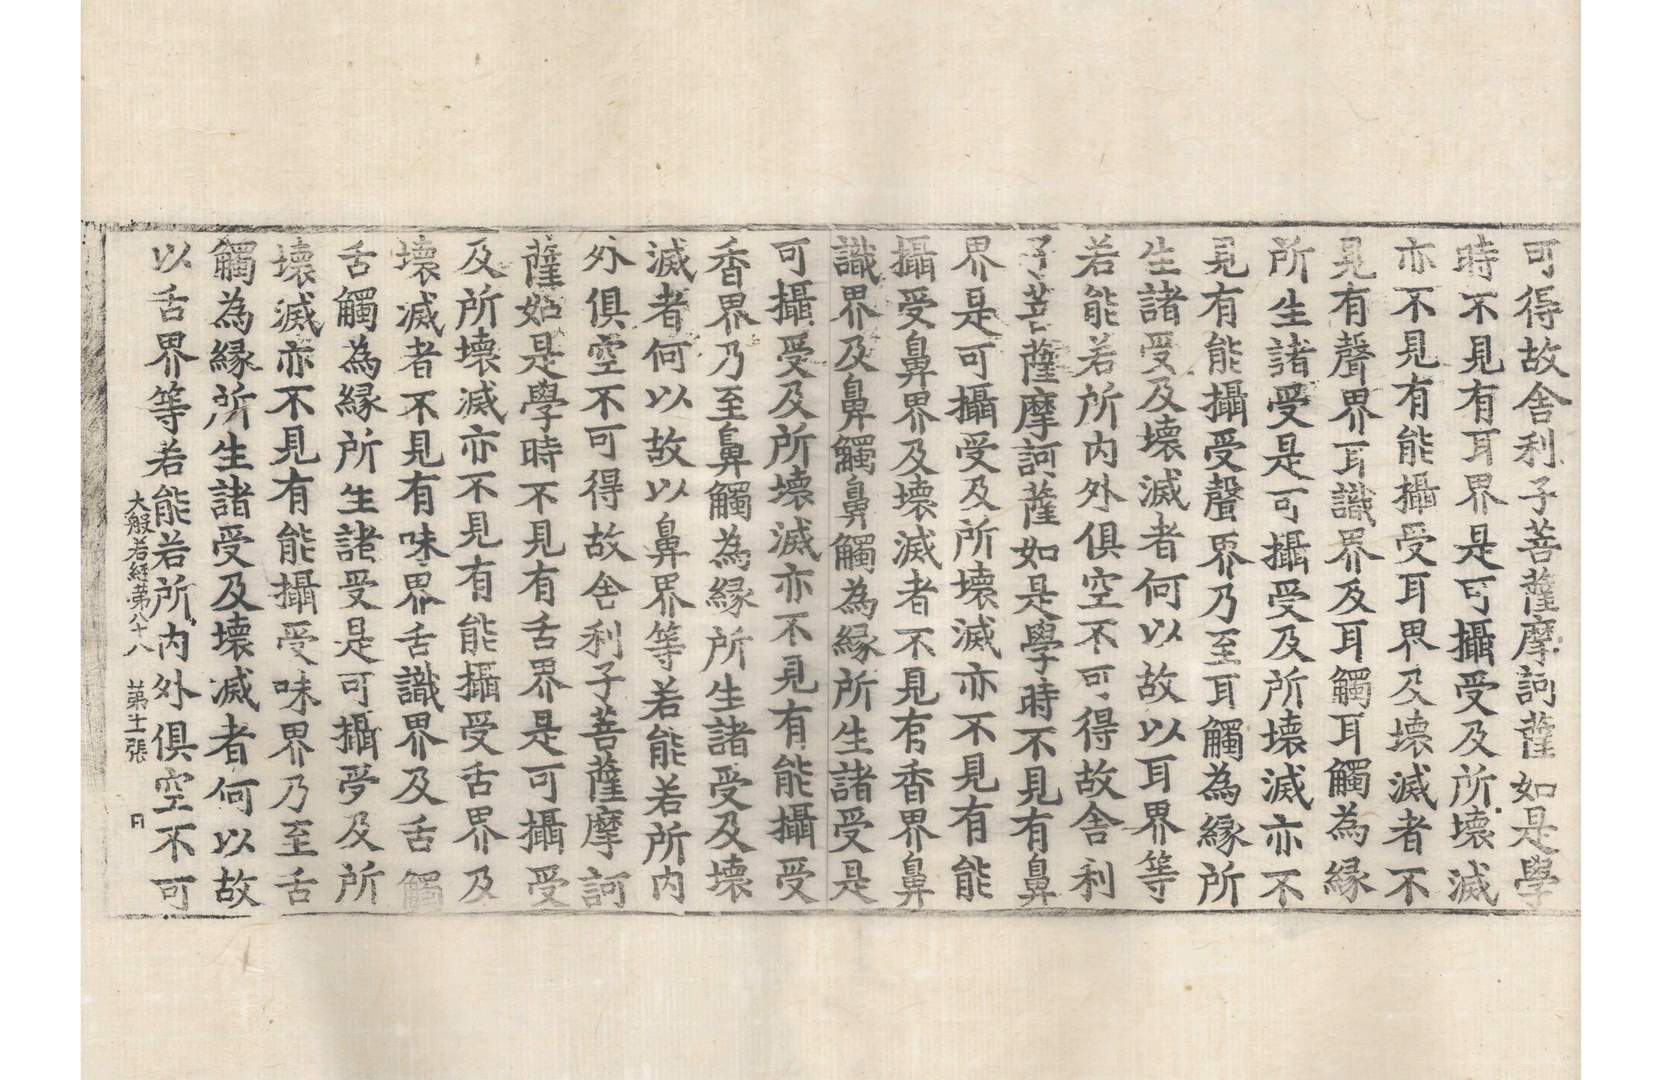 可得故舍利子菩薩摩訶薩如是學
時不見有耳界是可攝受及所壞滅
亦不見有能攝受耳界及壞滅者不
見有聲界耳識界及耳觸耳觸為緣
所生諸受是可攝受及所壞滅亦不
見有能攝受聲界乃至耳觸為緣所
生諸受及壞滅者何以故以耳界等
若能若所内外俱空不可得故舍利
子菩薩摩訶薩如是學時不見有鼻
界是可攝受及所壞滅亦不見有能
攝受鼻界及壞滅者不見有香界鼻
識界及鼻觸鼻觸為緣所生諸受是
可攝受及所壞滅亦不見有能攝受
香界乃至鼻觸為緣所生諸受及壞
滅者何以故以鼻界等若能若所内
外俱空不可得故舍利子菩薩摩訶
薩如是學時不見有舌界是可攝受
及所壞滅亦不見有能攝受舌界及
壞滅者不見有味界舌識界及舌觸
舌觸為緣所生諸受是可攝受及所
壞滅亦不見有能攝受味界乃至舌
觸為緣所生諸受及壞滅者何以故
以舌界等若能若所内外俱空不可
大般若經第八十八 第十一張